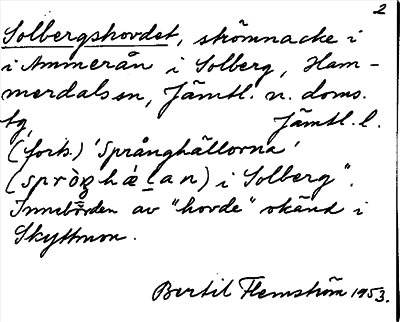 2
Solbergshovdet, strömnacke i
i Ammerån i Solberg, Ham-
merdals sn, Jämtl. n. doms.
tg, Jämtl. l.
(forts.) 'Språnghällorna'
(spròŋhæ̀_an) i Solberg".
Innebörden av "hovde" okänd i
Skyttmon.
Bertil Flemström 1953.